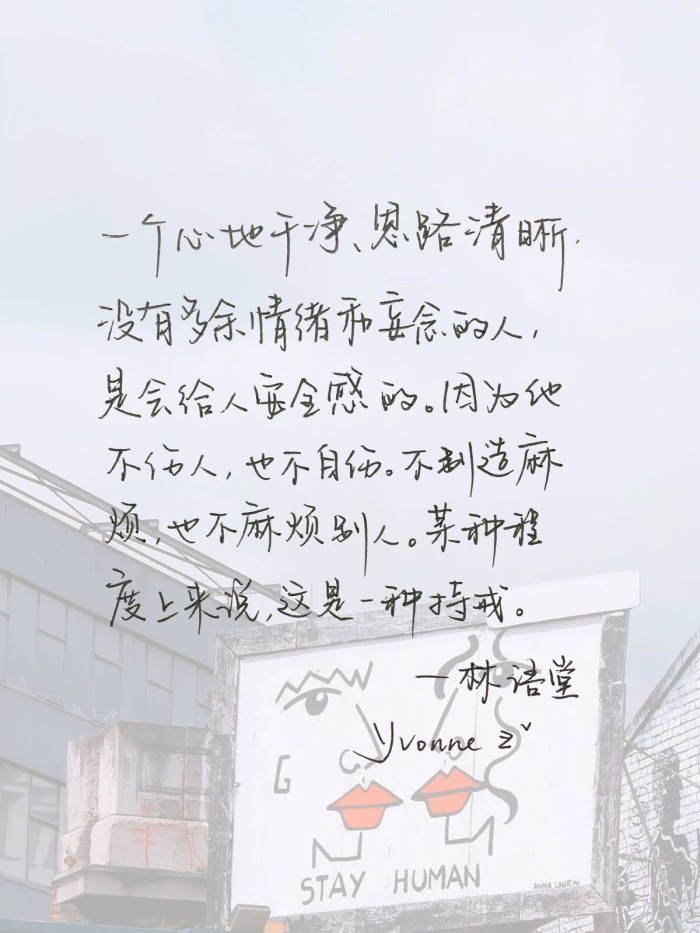 一个心地干净、思路清晰,
没有多余情绪和妄念的人,
是会给人安全感的。因为他
不伤人,也不自伤。不制造麻
烦,也不麻烦别人。某种程
度上来说,这是一种持戒。
—林语堂
Yvonne Z
G
STAY HUMAN